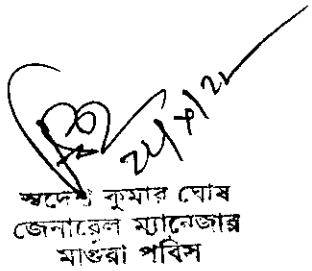 স্বদেশ কুমার ঘোষ
জেনারেল ম্যানেজার
মাগুরা পবিস